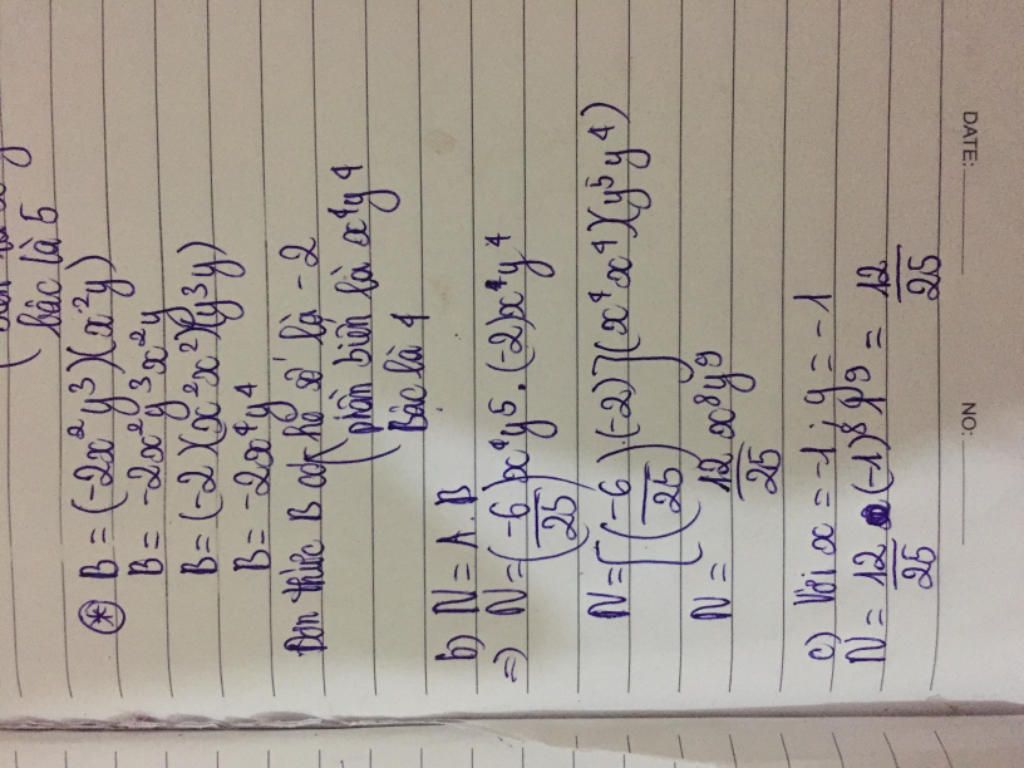 bậc là 5
* B = (-2x²y³)(x²y)
B = -2x²y³x²y
B = (-2)(x²x²)(y³y)
B = -2x⁴y⁴
Đơn thức B có hệ số là -2
phần biến là x⁴y⁴
Bậc là 4
b) N = A.B
=) N = (-6/25)x⁴y⁵.(-2)x⁴y⁴
N = [(-6/25).(-2)](x⁴x⁴)(y⁵y⁴)
N = 12/25 x⁸y⁹
c) Với x = -1; y = -1
N = 12/25 (-1)⁸ 1⁹ = 12/25
DATE:
NO: